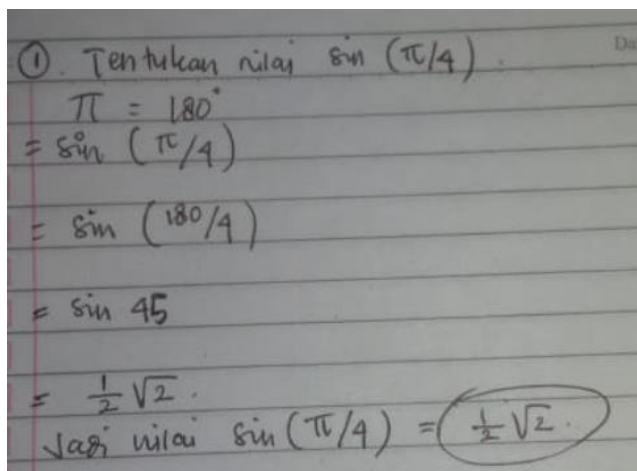 ① . Tentukan nilai sin (π/4) .
π = 180°
= sin (π/4)
= sin (180/4)
= sin 45
= 1/2 √2 .
Jadi nilai sin (π/4) = 1/2 √2 .